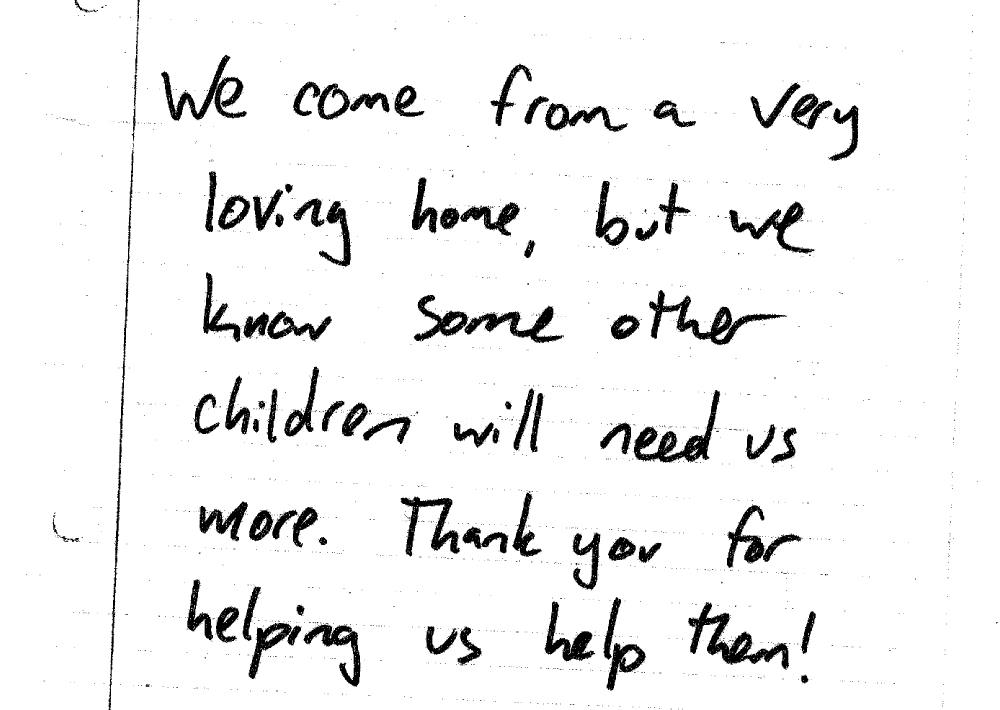 We come from a very
loving home, but we
know some other
children will need us
more. Thank you for
helping us help them!